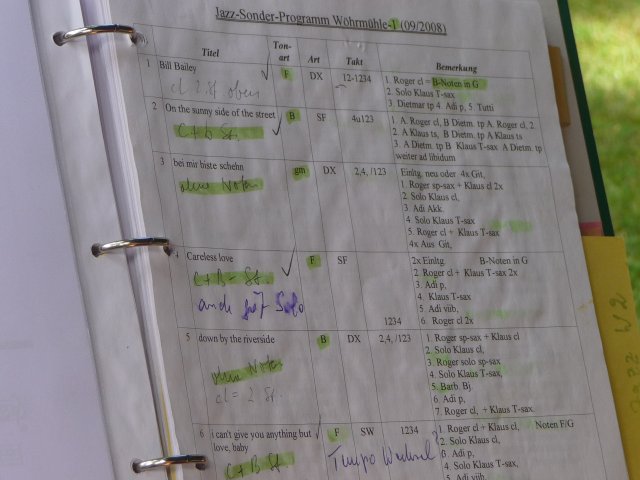 Jazz-Sonder-Programm Wöhrmühle-1 (09/2008)
Titel Ton-art Art Takt Bemerkung
1 Bill Bailey F DX 12-1234 1. Roger cl = B-Noten in G
2. Solo Klaus T-sax
3. Dietmar tp 4. Adi p, 5. Tutti
2 On the sunny side of the street B SF 4u123 1. A. Roger cl, B Dietm. tp A. Roger cl, 2.
C+B St. 2. A Klaus ts, B Dietm. tp A Klaus ts
3. A Dietm. tp B Klaus T-sax A Dietm. tp
weiter ad libidum
3 bei mir biste schehn gm DX 2,4, /123 Einltg, neu oder 4x Git,
ohne Noten 1. Roger sp-sax + Klaus cl 2x
2. Solo Klaus cl,
3. Adi Akk.
4. Solo Klaus T-sax
5. Roger cl + Klaus T-sax
4x Aus Git,
4 Careless love F SF 2x Einltg B-Noten in G
C+B = St. 2 Roger cl + Klaus T-sax 2x
3. Adi p,
4. Klaus T-sax
Solo 5. Adi viib,
1234 6. Roger cl 2x
5 down by the riverside B DX 2,4, /123 1. Roger sp-sax + Klaus cl
2. Solo Klaus cl,
ohne Noten 3. Roger solo sp-sax
cl = 2 St. 4. Solo Klaus T-sax,
5. Barb. Bj.
6. Adi p,
7. Roger cl, + Klaus T-sax
6 i can't give you anything but love, baby F SW 1234 1. Roger cl + Klaus cl, Noten F/G
C+B St. Tempo Wechsel 2. Solo Klaus cl,
3. Adi p,
4. Solo Klaus T-sax,
5. Adi viib